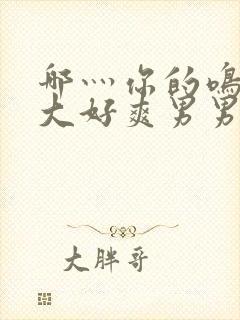 哪灬你的鳴
大好爽男男
大胖哥